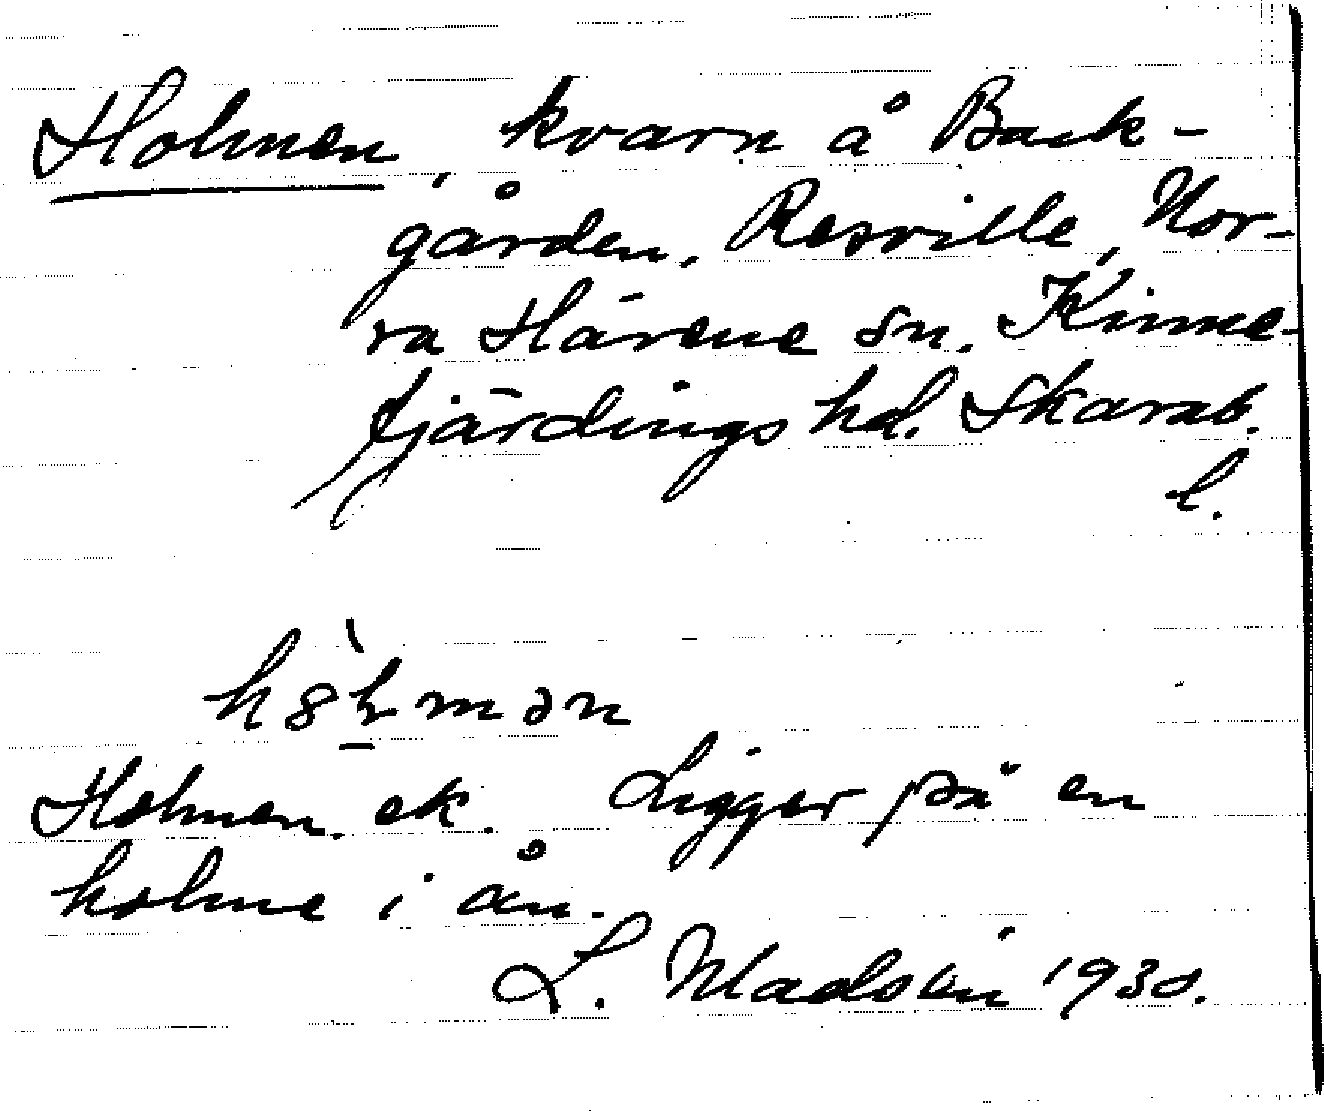 Holmen, kvarn å Back-
gården, Resville, Nor-
ra Härene sn. Kinne-
fjärdings hd. Skarab.
l.
hȯ̀lmən
Holmen. ek. Ligger på en
holme i ån.
L. Madsén 1930.